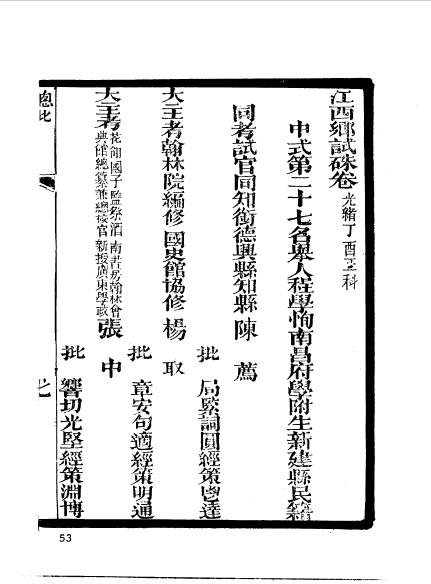 江西鄉試硃卷光緒丁酉正科
中式第二十七名舉人程學恂南昌府學附生新建縣民籍
同考試官同知銜德興縣知縣陳 薦
批 局緊詞圓經策豐達
大主考翰林院編修 國史館協修 楊 取
批 章安句適經策明通
大主考花翎國子監祭酒南書房翰林會典館總纂兼總校官新授廣東學政張 中
批 響切光堅經策淵博
總批
53